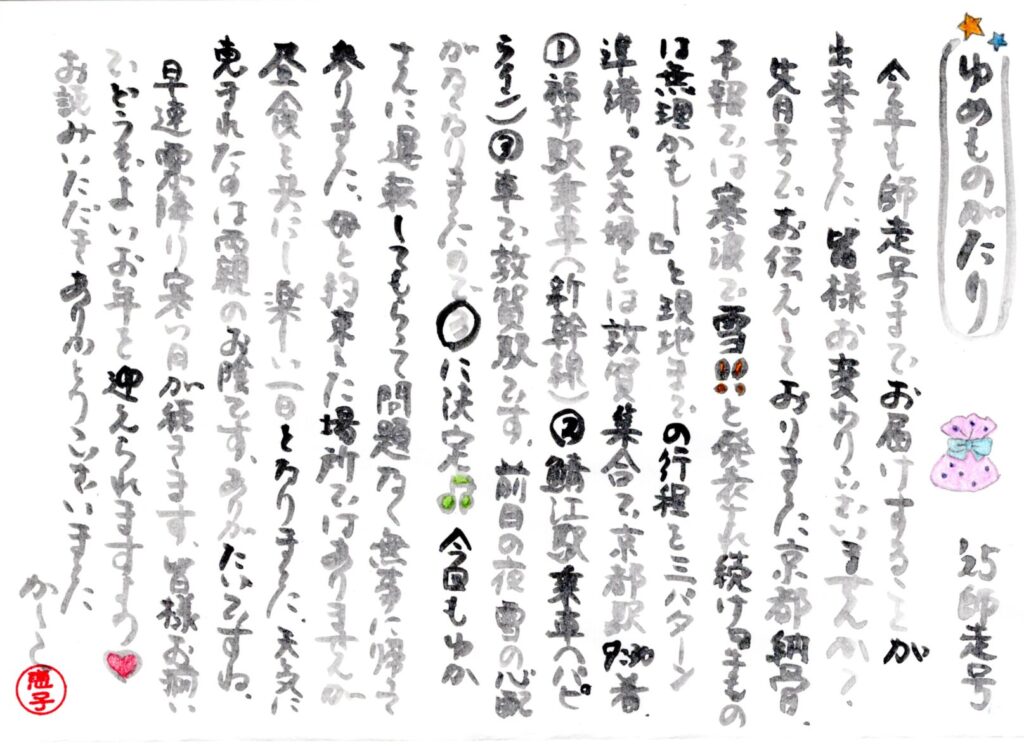 ゆめものがたり
'25師走号
今年も師走号までお届けすることが
出来ました、皆様お変わりございませんか?
先月号でお伝えしておりました京都納骨、
予報では寒波で雪!!と発表され続け『まもの
は無理かもー』と現地までの行程を三パターン
準備。兄夫婦とは敦賀集合で京都駅9:30着、
①福井駅乗車(新幹線)②鯖江駅乗車(ハピ
ライン)③車で敦賀駅です、前日の夜雪の心配
がなくなりましたので③に決定 今回もゆか
さんに運転してもらって問題なく無事に帰って
参りました、母と約束した場所ではありませんが
昼食を共にし楽しい一日となりました、天気に
恵まれたのは両親のお陰です、ありがたいですね、
早速霙降り寒い日が続きます、皆様お揃い
でどうぞよいお年を迎えられますよう
お読みいただきありがとうございました
かーこ